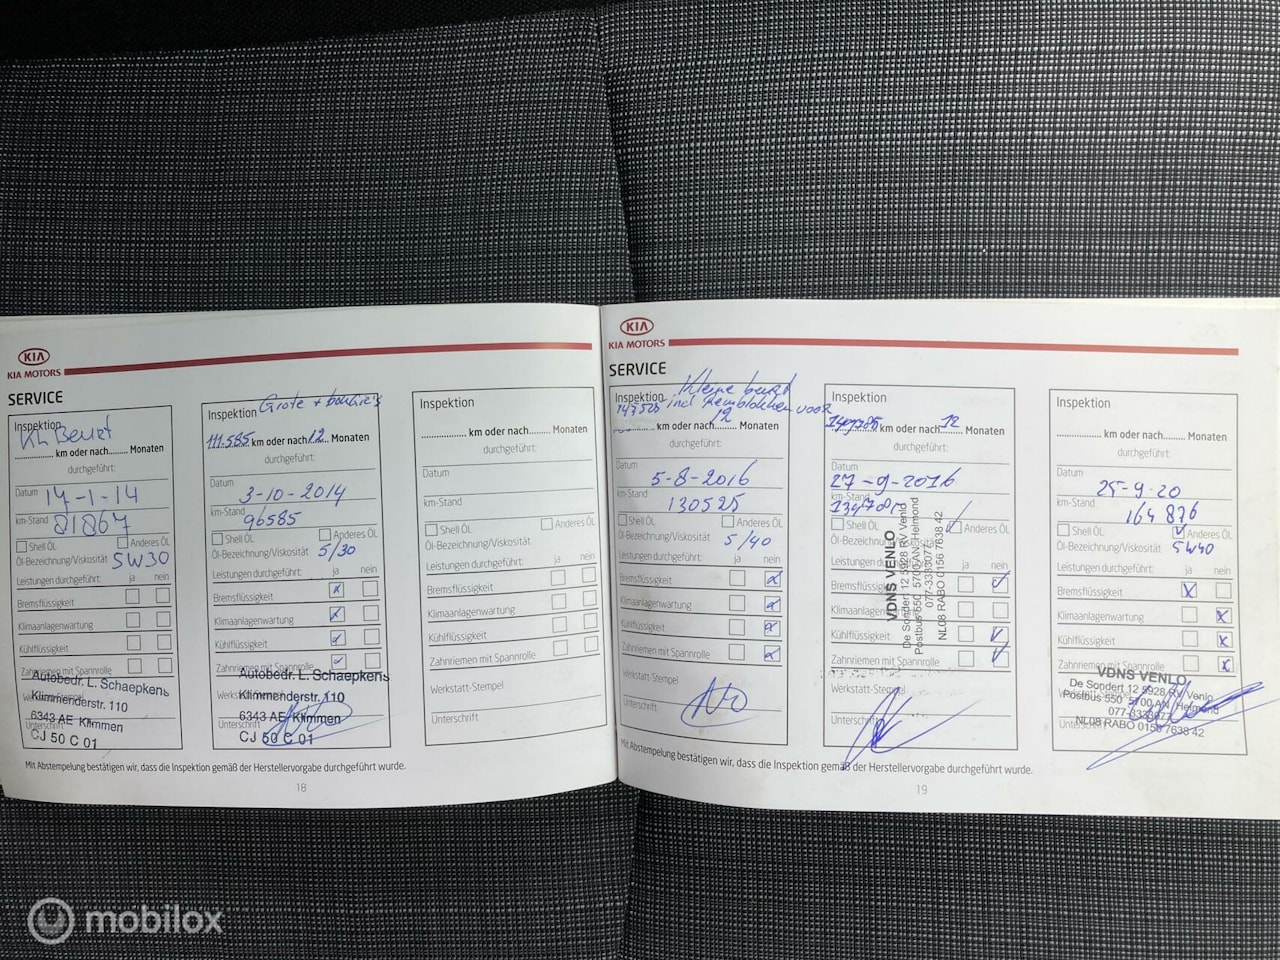 KIA
KIA MOTORS
SERVICE
Inspektion
Kl Beurt
km oder nach
Monaten
durchgeführt:
Datum 14-1-14
km-Stand 81867
Shell ÖL
Anderes ÖL
Öl-Bezeichnung/Viskosität 5W30
Leistungen durchgeführt: ja nein
Bremsflüssigkeit
Klimaanlagenwartung
Kühlflüssigkeit
Zahnriemen mit Spannrolle
Autobedr. L. Schaepkens
Klimmenderstr. 110
6343 AE Klimmen
Unterschrift
CJ 50 C 01
Inspektion Grote +
111.585 km oder nach 12 Monaten
durchgeführt:
Datum
3-10-2014
km-Stand
96585
Shell ÖL
Anderes ÖL
Öl-Bezeichnung/Viskosität 5/30
Leistungen durchgeführt: ja nein
Bremsflüssigkeit x
Klimaanlagenwartung x
Kühlflüssigkeit
Zahnriemen mit Spannrolle
Autobedr. L. Schaepkens
Klimmenderstr. 110
6343 AE Klimmen
Unterschrift
CJ 50 C 01
Inspektion
km oder nach
Monaten
durchgeführt:
Datum
km-Stand
Shell ÖL
Anderes ÖL
Öl-Bezeichnung/Viskosität
Leistungen durchgeführt: ja nein
Bremsflüssigkeit
Klimaanlagenwartung
Kühlflüssigkeit
Zahnriemen mit Spannrolle
Werkstatt-Stempel
Unterschrift
Mit Abstempelung bestätigen wir, dass die Inspektion gemäß der Herstellervorgabe durchgeführt wurde.
18
KIA
KIA MOTORS
SERVICE
Kleine beurt
Inspektion
incl Remblokken voor
12
km oder nach
Monaten
durchgeführt:
Datum
5-8-2016
km-Stand
130525
Shell ÖL
Anderes ÖL
Öl-Bezeichnung/Viskosität 5/40
Leistungen durchgeführt: ja nein
Bremsflüssigkeit x
Klimaanlagenwartung x
Kühlflüssigkeit x
Zahnriemen mit Spannrolle x
Werkstatt-Stempel
Unterschrift
Inspektion
12
km oder nach
Monaten
durchgeführt:
Datum
27-9-2016
km-Stand
Shell ÖL
Anderes ÖL
Öl-Bezeichnung/Viskosität
Leistungen durchgeführt:
Bremsflüssigkeit
Klimaanlagen
Kühlflüssigkeit
Zahnriemen mit Spannrolle
VDNS VENLO
De Sondert 12 5928 RV Venlo
Postbus 550 5700 AN Helmond
077-3333077
NL08 RABO 0156 7638 42
Werkstatt-Stempel
Unterschrift
Inspektion
km oder nach
Monaten
durchgeführt:
Datum
25-9-20
km-Stand
164876
Shell ÖL
Anderes ÖL
Öl-Bezeichnung/Viskosität 5W40
Leistungen durchgeführt: ja nein
Bremsflüssigkeit x
Klimaanlagenwartung x
Kühlflüssigkeit x
Zahnriemen mit Spannrolle x
VDNS VENLO
De Sondert 12 5928 RV Venlo
Postbus 550 5700 AN Helmond
077-3333077
NL08 RABO 0156 7638 42
Mit Abstempelung bestätigen wir, dass die Inspektion gemäß der Herstellervorgabe durchgeführt wurde.
19
mobilox